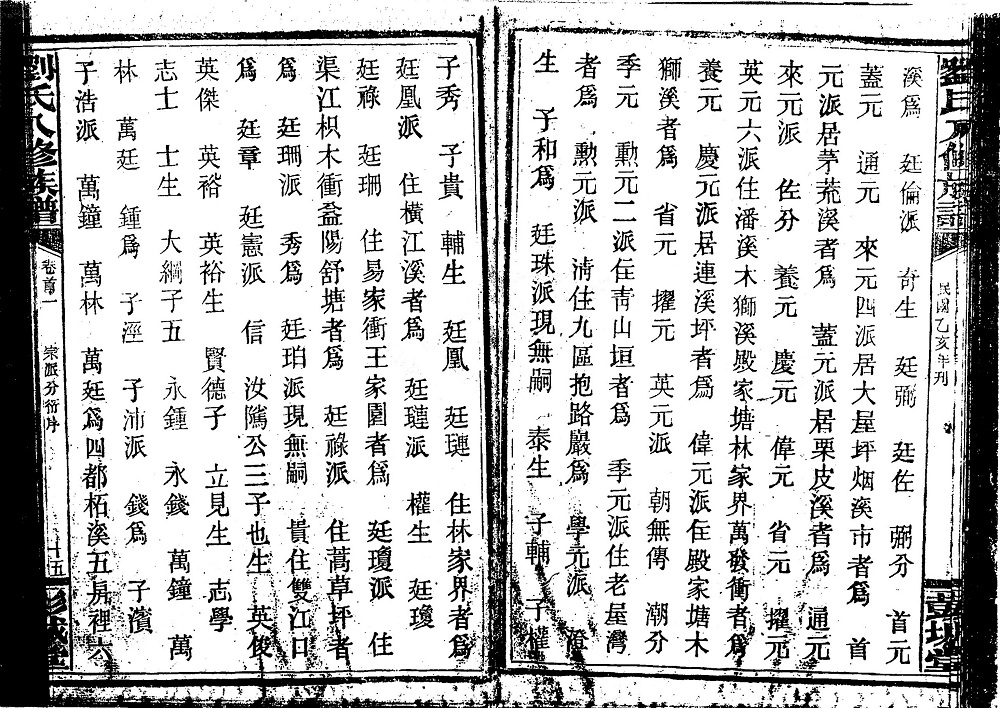 民國乙亥年刊
溪爲 廷倫派 奇生 廷弼 廷佐 弼分 首元
蓋元 通元 來元四派居大屋坪烟溪市者爲 首
元派居茅荒溪者爲 蓋元派居栗皮溪者爲 通元
來元派 佐分 養元 慶元 偉元 省元 擢元
英元六派住潘溪木獅溪殿家塘林家界萬發衝者爲
養元 慶元派居連溪坪者爲 偉元派住殿家塘木
獅溪者爲 省元 擢元 英元派 朝無傳 潮分
季元 勳元二派住靑山垣者爲 季元派住老屋灣
者爲 勳元派 淸住九區抱路巖爲 學元派 澄
生 子和爲 廷珠派現無嗣 泰生 子輔 子權
子秀 子貴 輔生 廷鳳 廷璉 住林家界者爲
廷鳳派 住橫江溪者爲 廷璉派 權生 廷瓊
廷祿 廷珊 住易家衝王家園者爲 廷瓊派 住
渠江枳木衝益陽舒塘者爲 廷祿派 住蒿草坪者
爲 廷珊派 秀爲 廷珀派現無嗣 貴住雙江口
爲 廷章 廷憲派 信 汝隲公三子也生 英俊
英傑 英裕 英裕生 賢德子 立見生 志學
志士 士生 大綱子五 永鍾 永錢 萬鐘 萬
林 萬廷 鍾爲 子涇 子沛派 錢爲 子濱
子浩派 萬鐘 萬林 萬廷爲四都柘溪五房裡六
劉氏八修族譜
卷首一
宗派分衍序
十五
彭城堂